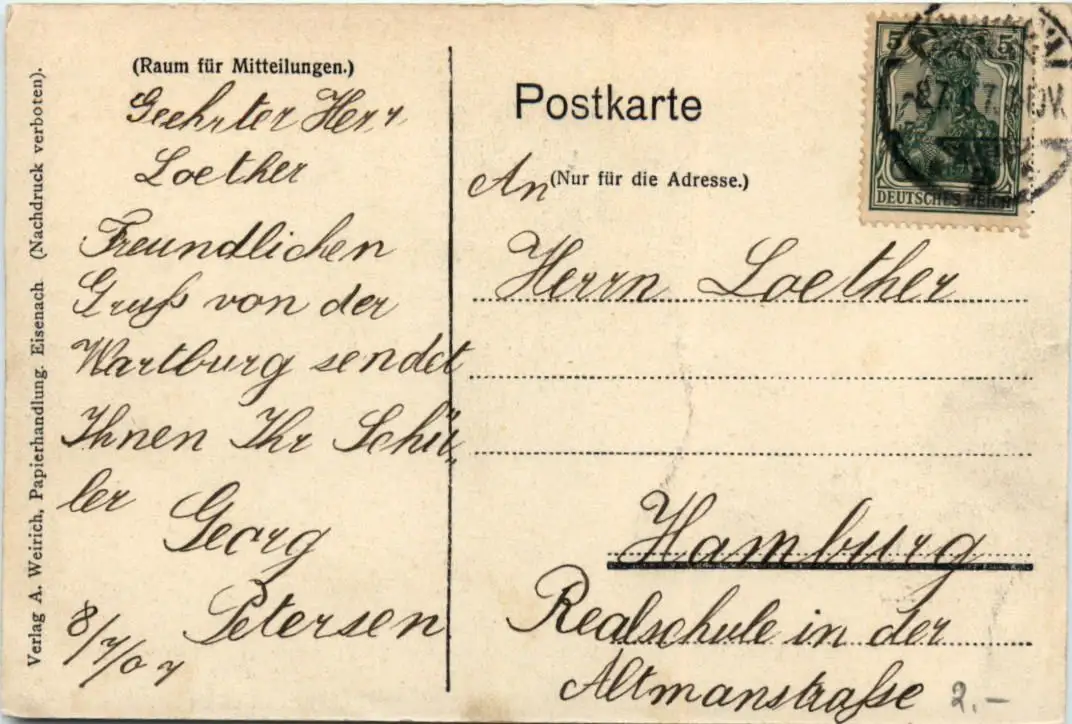 (Raum für Mitteilungen.)
Geehrter Herr
Loether
Freundlichen
Gruß von der
Wartburg sendet
Ihnen Ihr Schü„
ler
Georg
Petersen
8/7/07
Verlag A. Weirich, Papierhandlung. Eisenach. (Nachdruck verboten).
Postkarte
An (Nur für die Adresse.)
Herrn Loether
Hamburg
Realschule in der
Altmanstraße
2.-
5 5
DEUTSCHES REICH